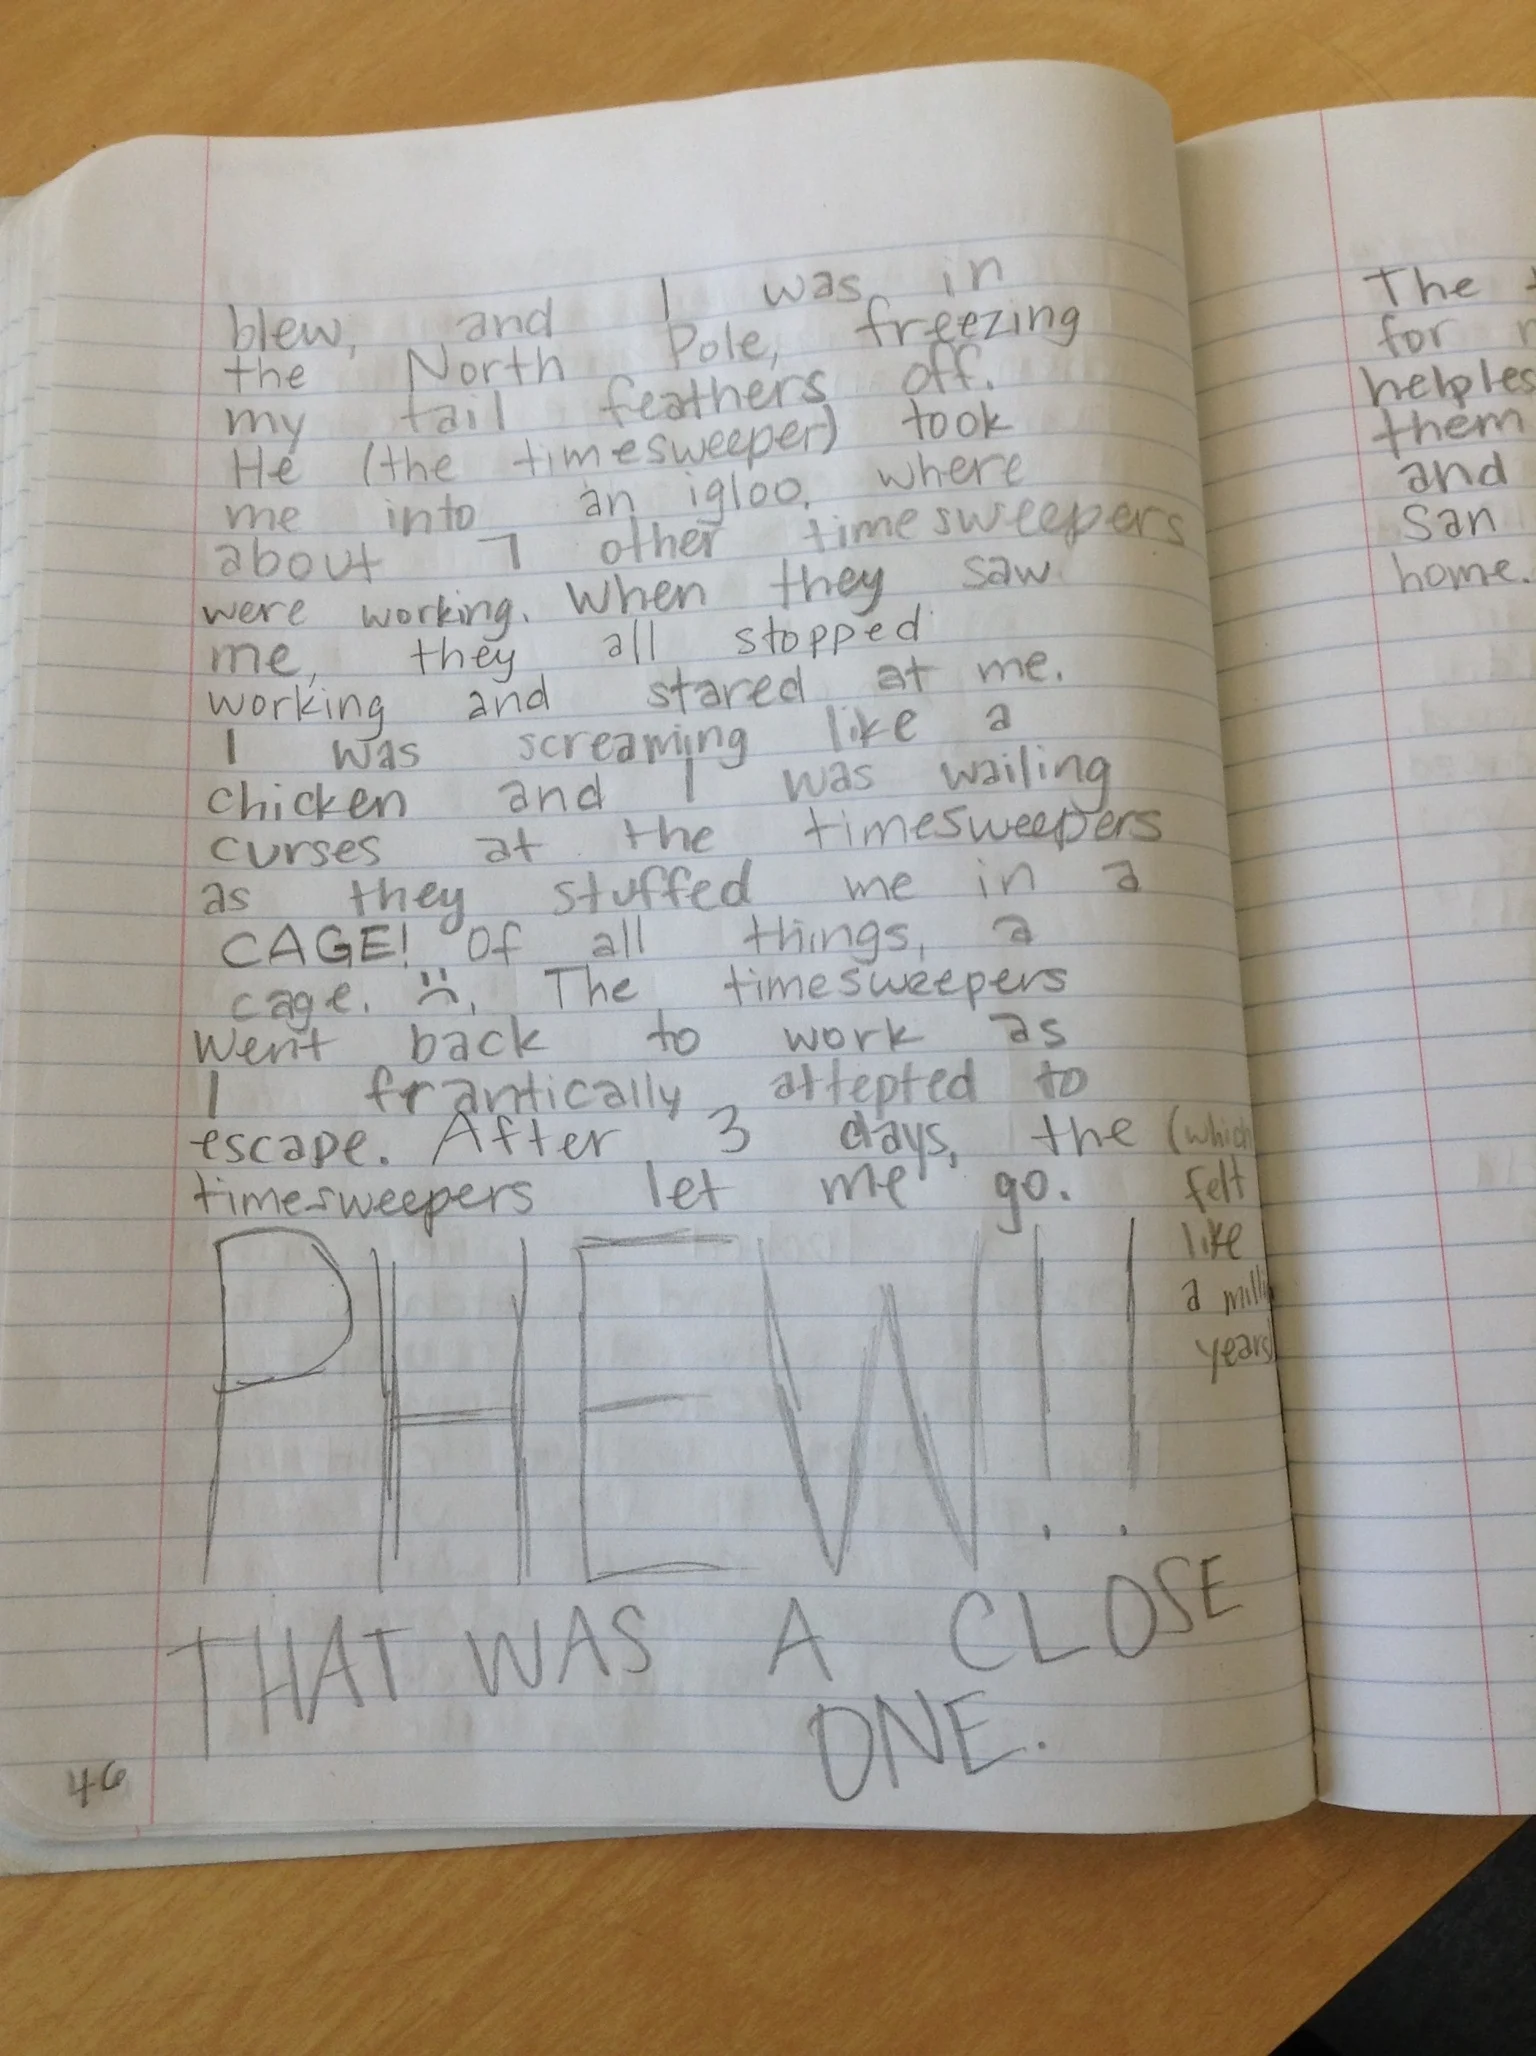 blew, and I was in
the North Pole, freezing
my tail feathers off.
He (the timesweeper) took
me into an igloo, where
about 7 other timesweepers
were working. When they saw
me, they all stopped
working and stared at me.
I was screaming like a
chicken and I was wailing
curses at the timesweepers
as they stuffed me in a
CAGE! Of all things, a
cage. :(. The timesweepers
went back to work as
I frantically attepted to
escape. After 3 days, the
timesweepers let me go.
(which
felt
like
a
years)
PHEW!!
THAT WAS A CLOSE
ONE.
46
The
for
them
and
San
home.